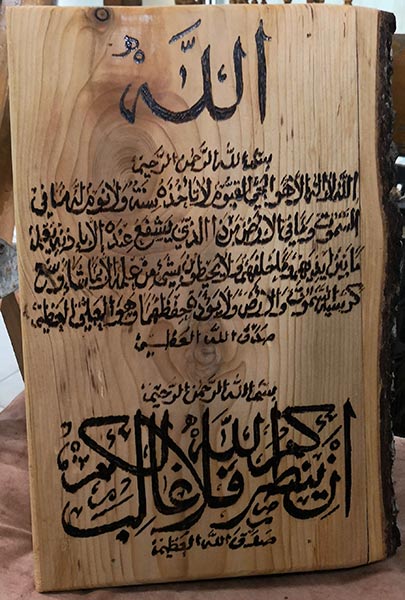 الله
بسم الله الرحمن الرحيم
الله لا اله الا هو الحي القيوم لا تأخذه سنة ولا نوم له ما في
السموت وما في الارض من ذا الذي يشفع عنده الا باذنه يعلم
ما بين ايديهم وما خلفهم ولا يحيطون بشيء من علمه الا بما شاء وسع
كرسيه السموت والارض ولا يؤده حفظهما وهو العلي العظيم
صدق الله العظيم
بسم الله الرحمن الرحيم
ان ينصركم الله فلا غالب لكم
صدق الله العظيم